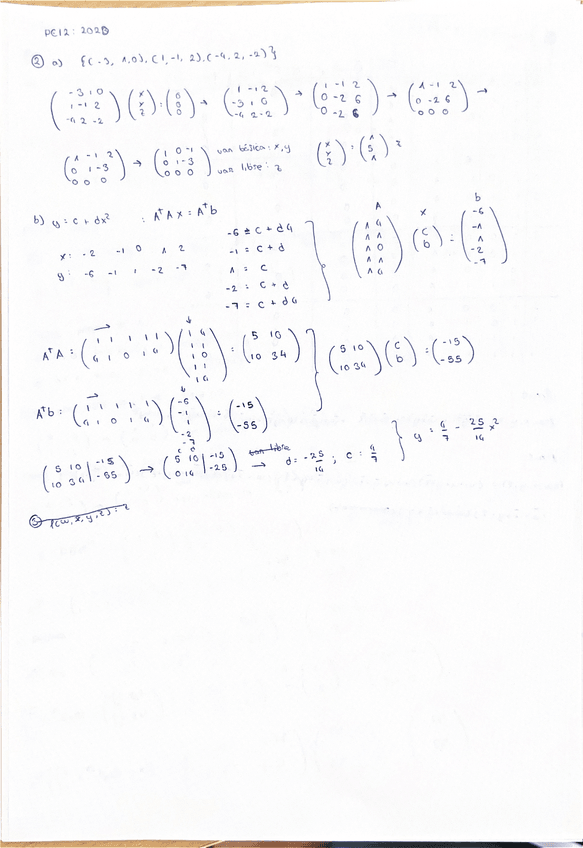 PEI2: 202B
② a) {(-3, 1, 0), (1, -1, 2), (-4, 2, -2)}
(-3 1 0 / 1 -1 2 / -4 2 -2) (x / y / z) = (0 / 0 / 0) → (1 -1 2 / -3 1 0 / -4 2 -2) → (1 -1 2 / 0 -2 6 / 0 -2 6) → (1 -1 2 / 0 -2 6 / 0 0 0) →
(1 -1 2 / 0 1 -3 / 0 0 0) → (1 0 -1 / 0 1 -3 / 0 0 0) var básica: x, y var libre: z (x / y / z) = (1 / 3 / 1) z
b) y = c + dx² : AᵀA x = Aᵀb
x: -2 -1 0 1 2
y: -6 -1 1 -2 -7
-6 = c + d4
-1 = c + d
1 = c
-2 = c + d
-7 = c + d4
A x b
(1 4 / 1 1 / 1 0 / 1 1 / 1 4) (c / b) = (-6 / -1 / 1 / -2 / -7)
AᵀA = (1 1 1 1 1 / 4 1 0 1 4) (1 4 / 1 1 / 1 0 / 1 1 / 1 4) = (5 10 / 10 34)
Aᵀb = (1 1 1 1 1 / 4 1 0 1 4) (-6 / -1 / 1 / -2 / -7) = (-15 / -55)
(5 10 / 10 34) (c / b) = (-15 / -55)
(5 10 | -15 / 10 34 | -55) → (5 10 | -15 / 0 14 | -25) var libre → d = -25/14 ; c = 4/7 } y = 4/7 - 25/14 x²
③ f(w, x, y, z) = 2